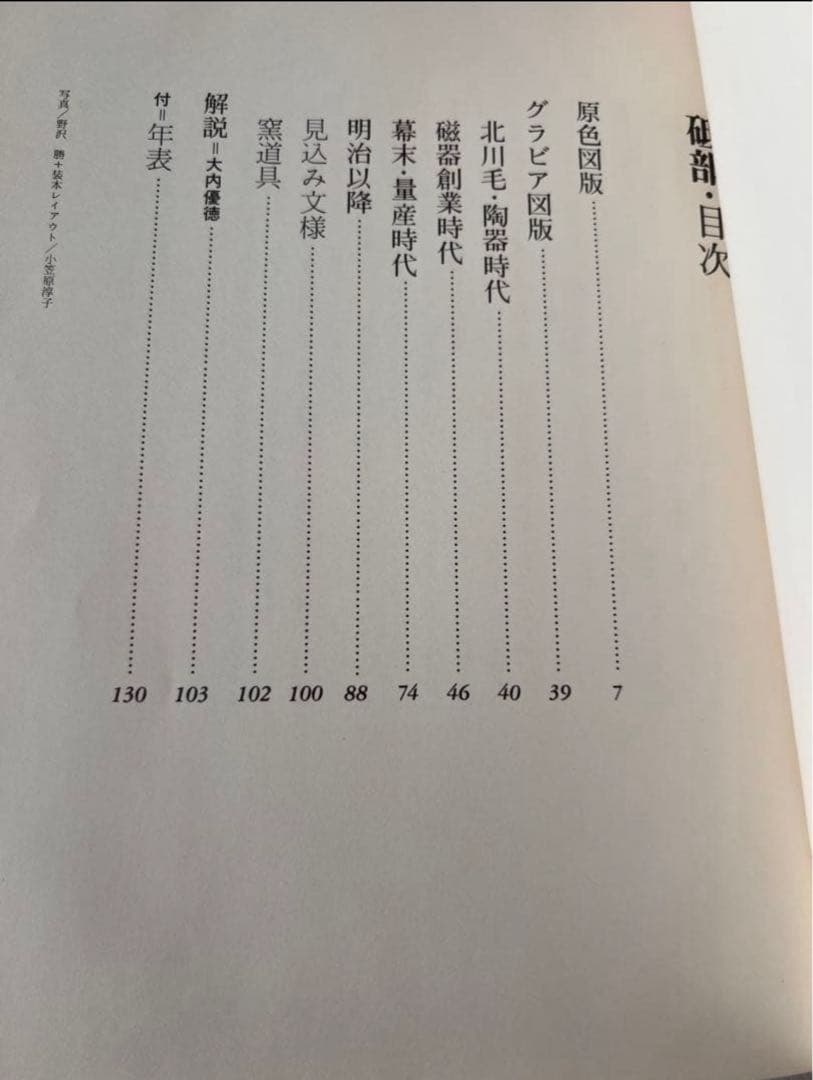 砥部・目次
原色図版 7
グラビア図版 39
北川毛・陶器時代 40
磁器創業時代 46
幕末・量産時代 74
明治以降 88
見込み文様 100
窯道具 102
解説=大内優德 103
付=年表 130
写真/野沢 勝+装本レイアウト/小笠原淳子